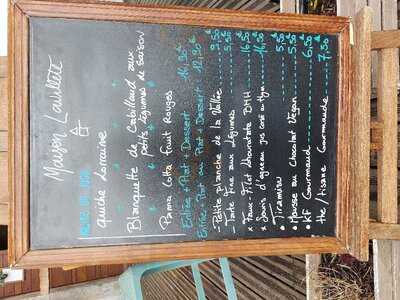 Maison Lauillete
MENU DU JOUR
quiche Lorraine
Blanquette de Cabillaud aux
petits légumes de saison
Panna Cotta fruit Rouges
Entrée + Plat + Dessert 16,90€
Entrée-Plat ou Plat + Dessert 12,90€
- Petite planche de la Vallée 9,50
- Tarte fine aux légumes 5,50
x Faux-Filet chouratata DMH 16,50
x Souris d'agneau jus corsé au thym 16,50
• Tiramisu 5,50
• Mousse au Chocolat Vegan 5,50
• Kf Gourmand 6,50
the / tisane Gourmande 7,50